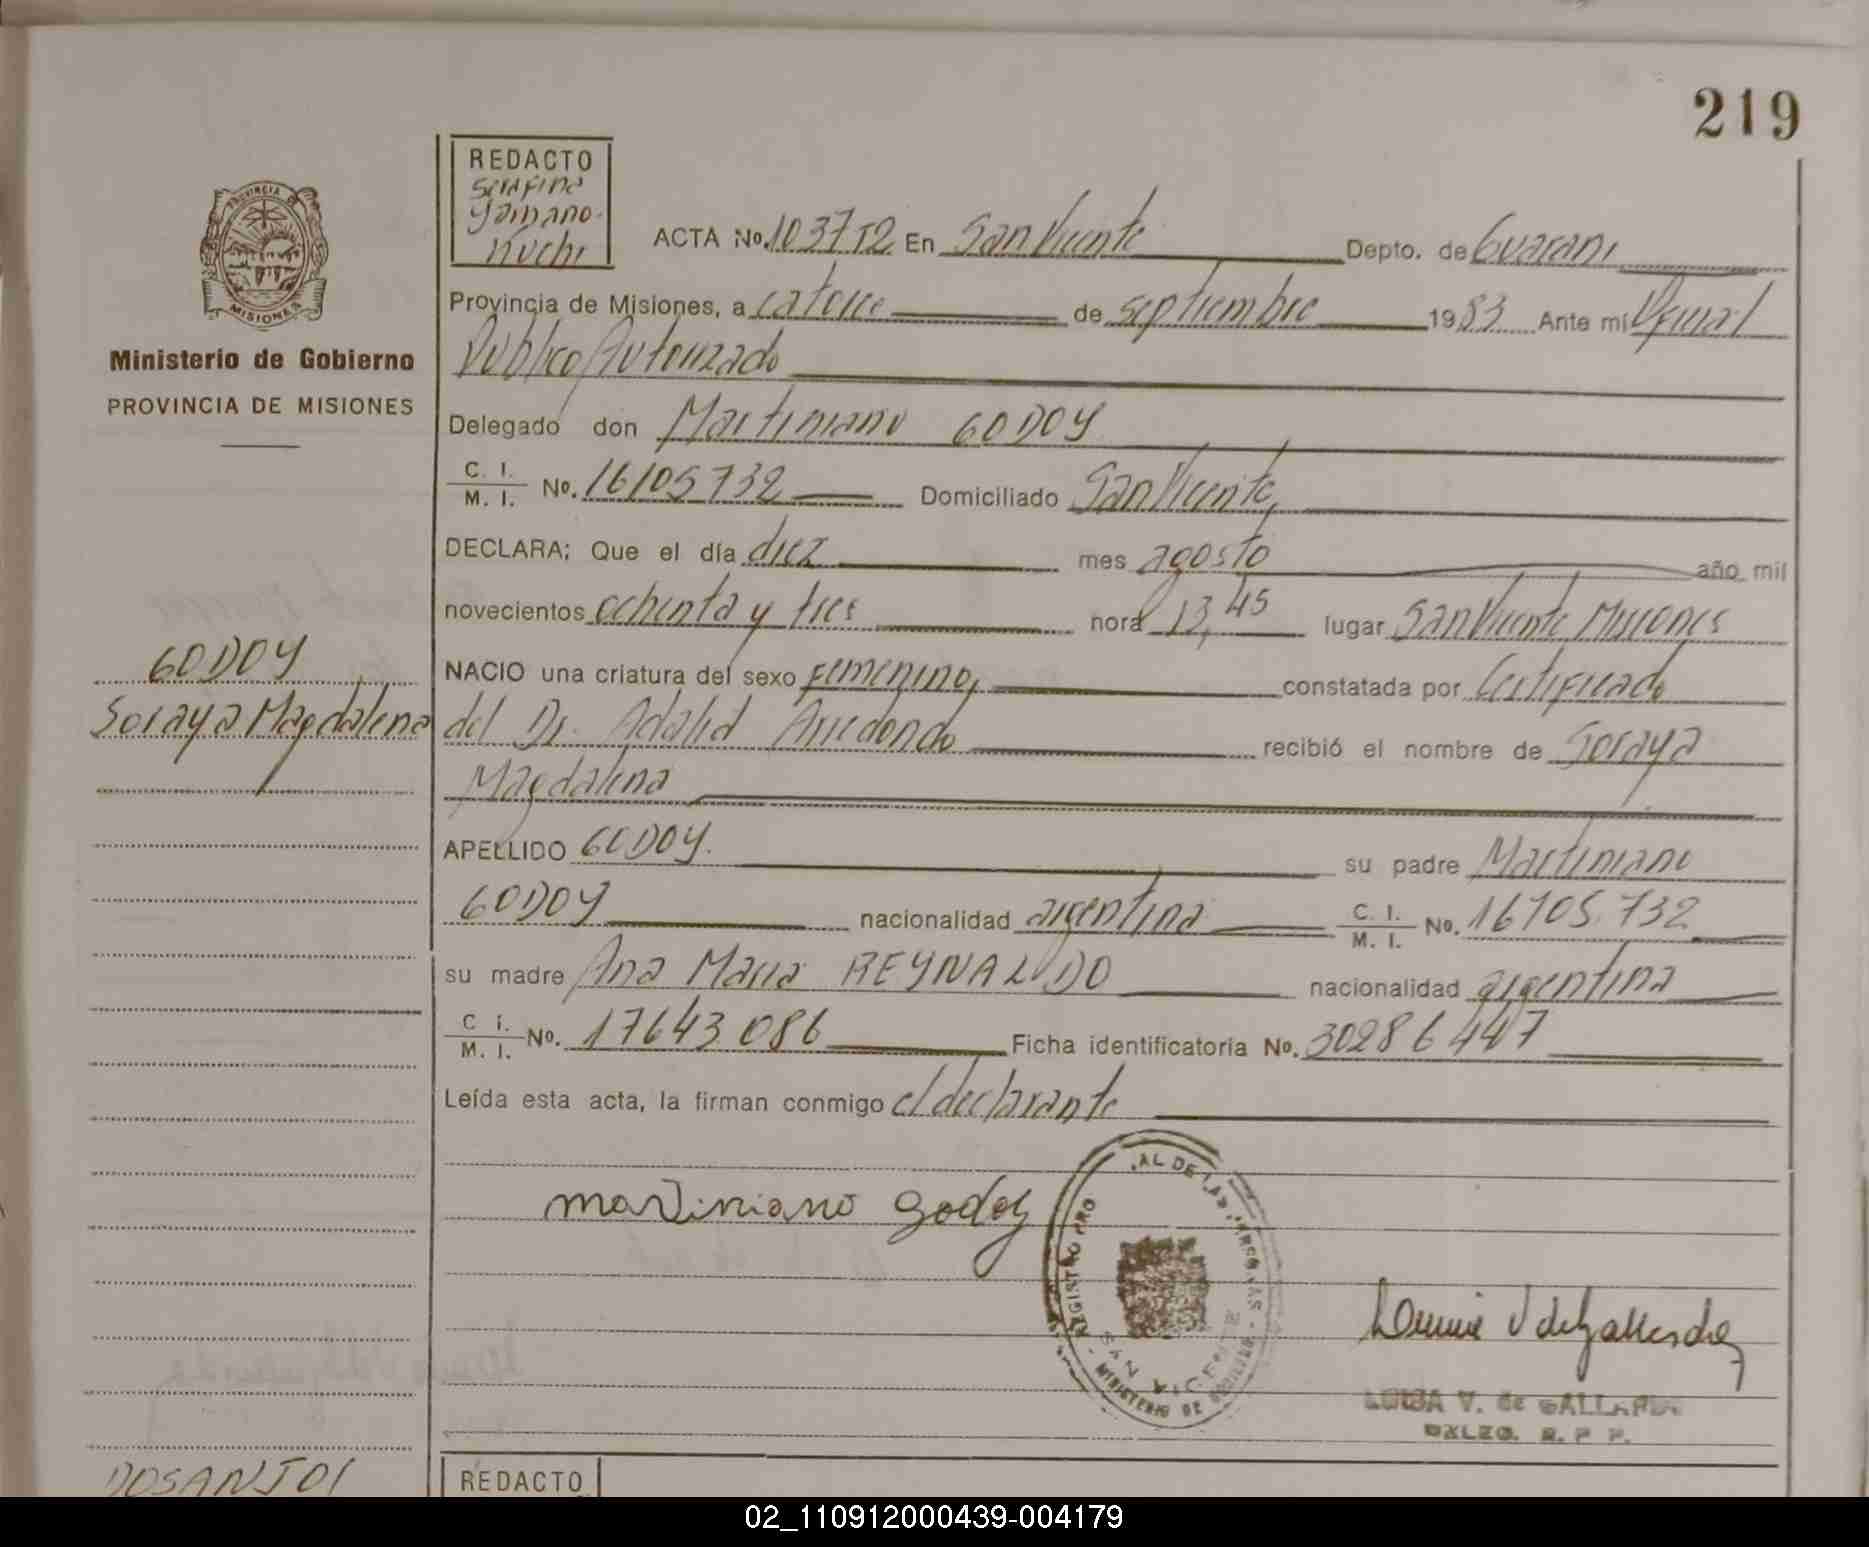 219
REDACTO
Serafina
Yamano
Kuchi
PROVINCIA DE
MISIONES
Ministerio de Gobierno
PROVINCIA DE MISIONES
ACTA No. 103752 En San Vicente Depto. de Guarani
Provincia de Misiones, a catorce de septiembre 1983 Ante mi Oficial
Publico Autorizado
Delegado don Martiniano GODOY
C. I. / M. I. No. 16105732 Domiciliado San Vicente,
DECLARA; Que el día diez mes agosto año mil
novecientos ochenta y tres hora 13,45 lugar San Vicente Misiones
NACIO una criatura del sexo Femenino, constatada por Certificado
del Dr. Adalid Arredondo recibió el nombre de Soraya
Magdalena
APELLIDO GODOY. su padre Martiniano
GODOY nacionalidad argentina C. I. / M. I. No. 16105.732
su madre Ana Maria REYNALDO nacionalidad argentina
C. I. / M. I. No. 17643086 Ficha identificatoria No. 30286447
Leída esta acta, la firman conmigo el declarante
GODOY
Soraya Magdalena
Martiniano Godoy
REGISTRO PRO AL DE LAS PERSONAS
SAN VICENTE
MINISTERIO DE GOBIERNO
LUISA V. de GALLARDO
R. P. P.
DOSANTOS
REDACTO
02_110912000439-004179